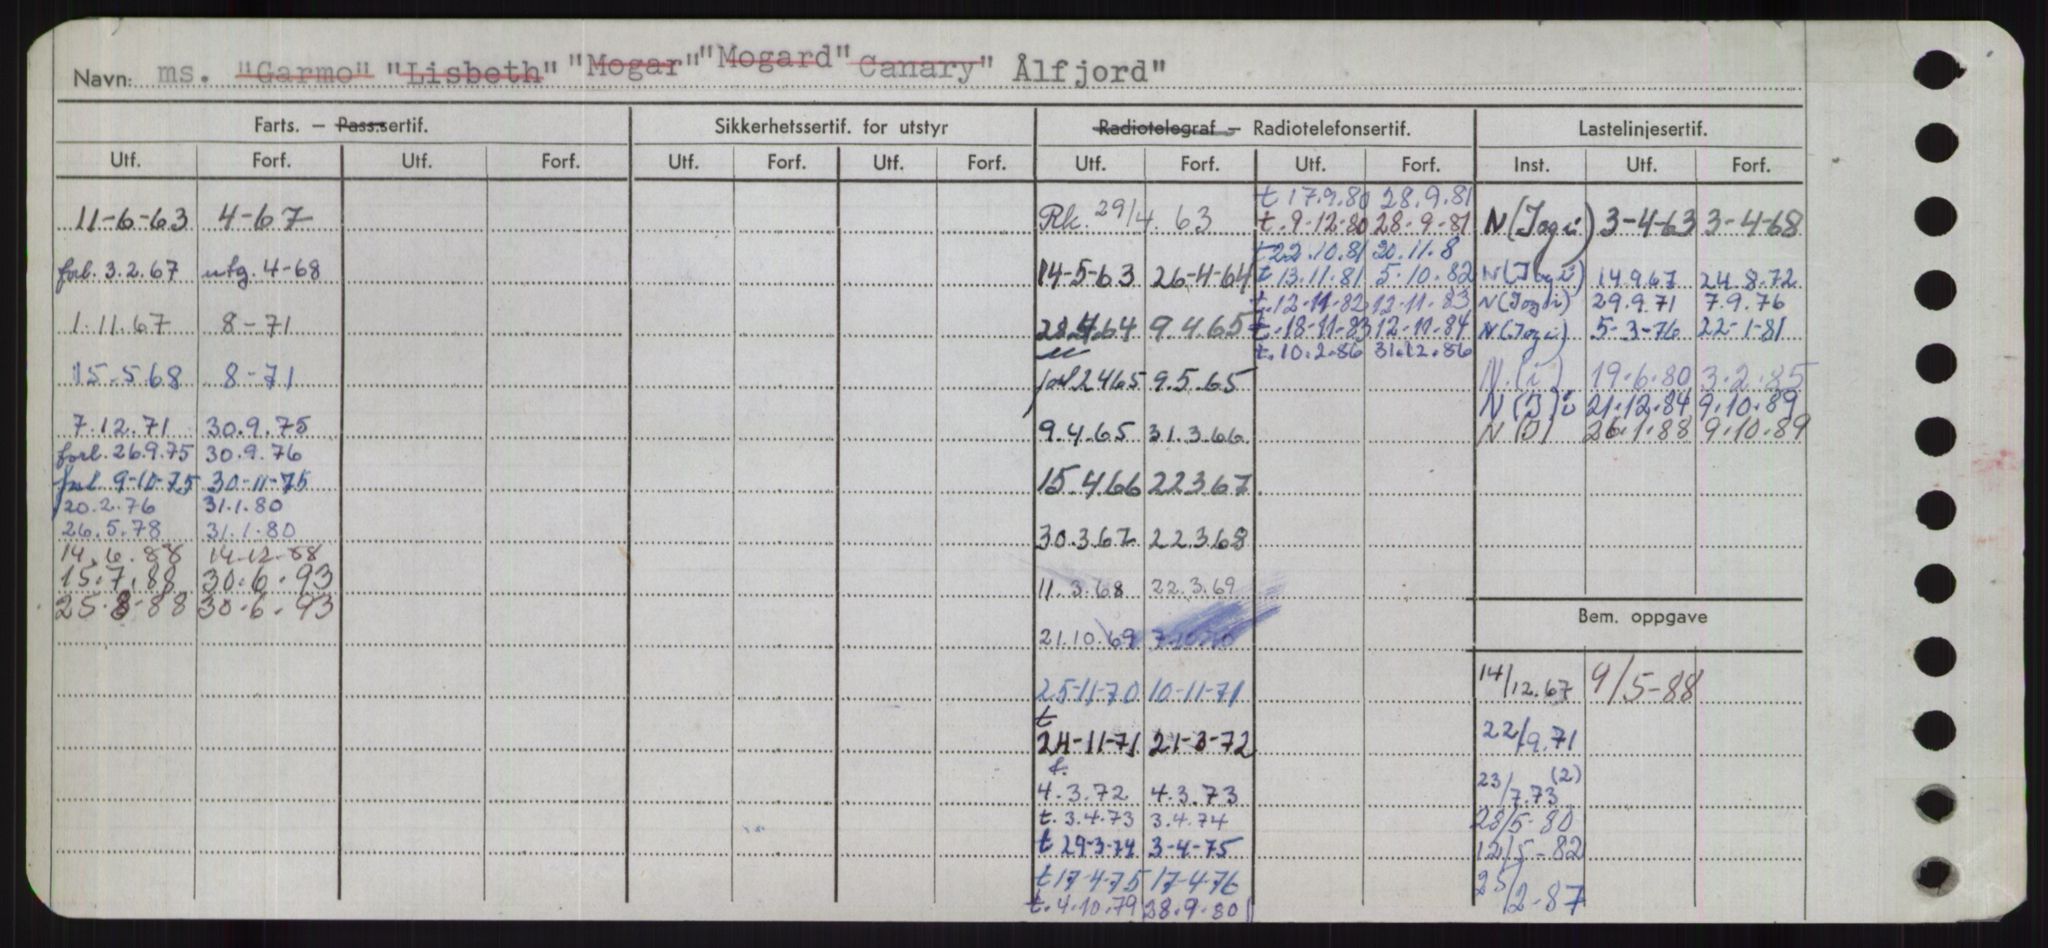 Navn: ms. "Garmo" "Lisbeth" "Mogar" "Mogard" Canary" Ålfjord"
Farts. – Pass.sertif. Sikkerhetssertif. for utstyr Radiotelegraf – Radiotelefonsertif. Lastelinjesertif.
Utf. Forf. Utf. Forf. Utf. Forf. Utf. Forf. Utf. Forf. Utf. Forf. Inst. Utf. Forf.
11-6-63 4-67
forl. 3.2.67 utg. 4-68
1.11.67 8-71
15.5.68 8-71
7.12.71 30.9.75
forl. 26.9.75 30.9.76
forl. 9-10-75 30-11-75
20.2.76 31.1.80
26.5.78 31.1.80
14.6.88 14.12.88
15.7.88 30.6.93
25.8-88 30-6-93
Rk. 29/4. 63
14-5-63 26-4-64
28.4.64 9.4.65
forl 2465 9.5.65
9.4.65 31.3.66
15.4.66 22367
30.3.67 22368
11.3.68 22.3.69
21.10.69 7.10.70
25-11-70 10-11-71
t
24-11-71 21-3-72
t.
4.3.72 4.3.73
t. 3.4.73 3.4.74
t 29-3-74 3-4-75
t 17-4-75 17-4-76
t. 4.10.79 28.9.80
t 17.9.80 28.9.81
t. 9-12-80 28-9-81
t 22.10.81 20.11.8
t 13.11.81 5.10.82
t. 12-11-82 12-11-83
t. 18-11-83 12-11-84
t. 10.2.86 31.12.86
N (Jogi) 3-4-63 3-4-68
N (Jogi) 14.9.67 24.8.72
N (Jogi) 29.9.71 7.9.76
N (Jogi) 5-3-76 22-1-81
N. (i) 19.6.80 3.2.85
N (J)i 21.12.84 9.10.89
N (J) 26.1.88 9.10.89
Bem. oppgave
14/12.67 9/5-88
22/9.71
23/7.73 (2)
28/5-80
12/5-82
25/2-87